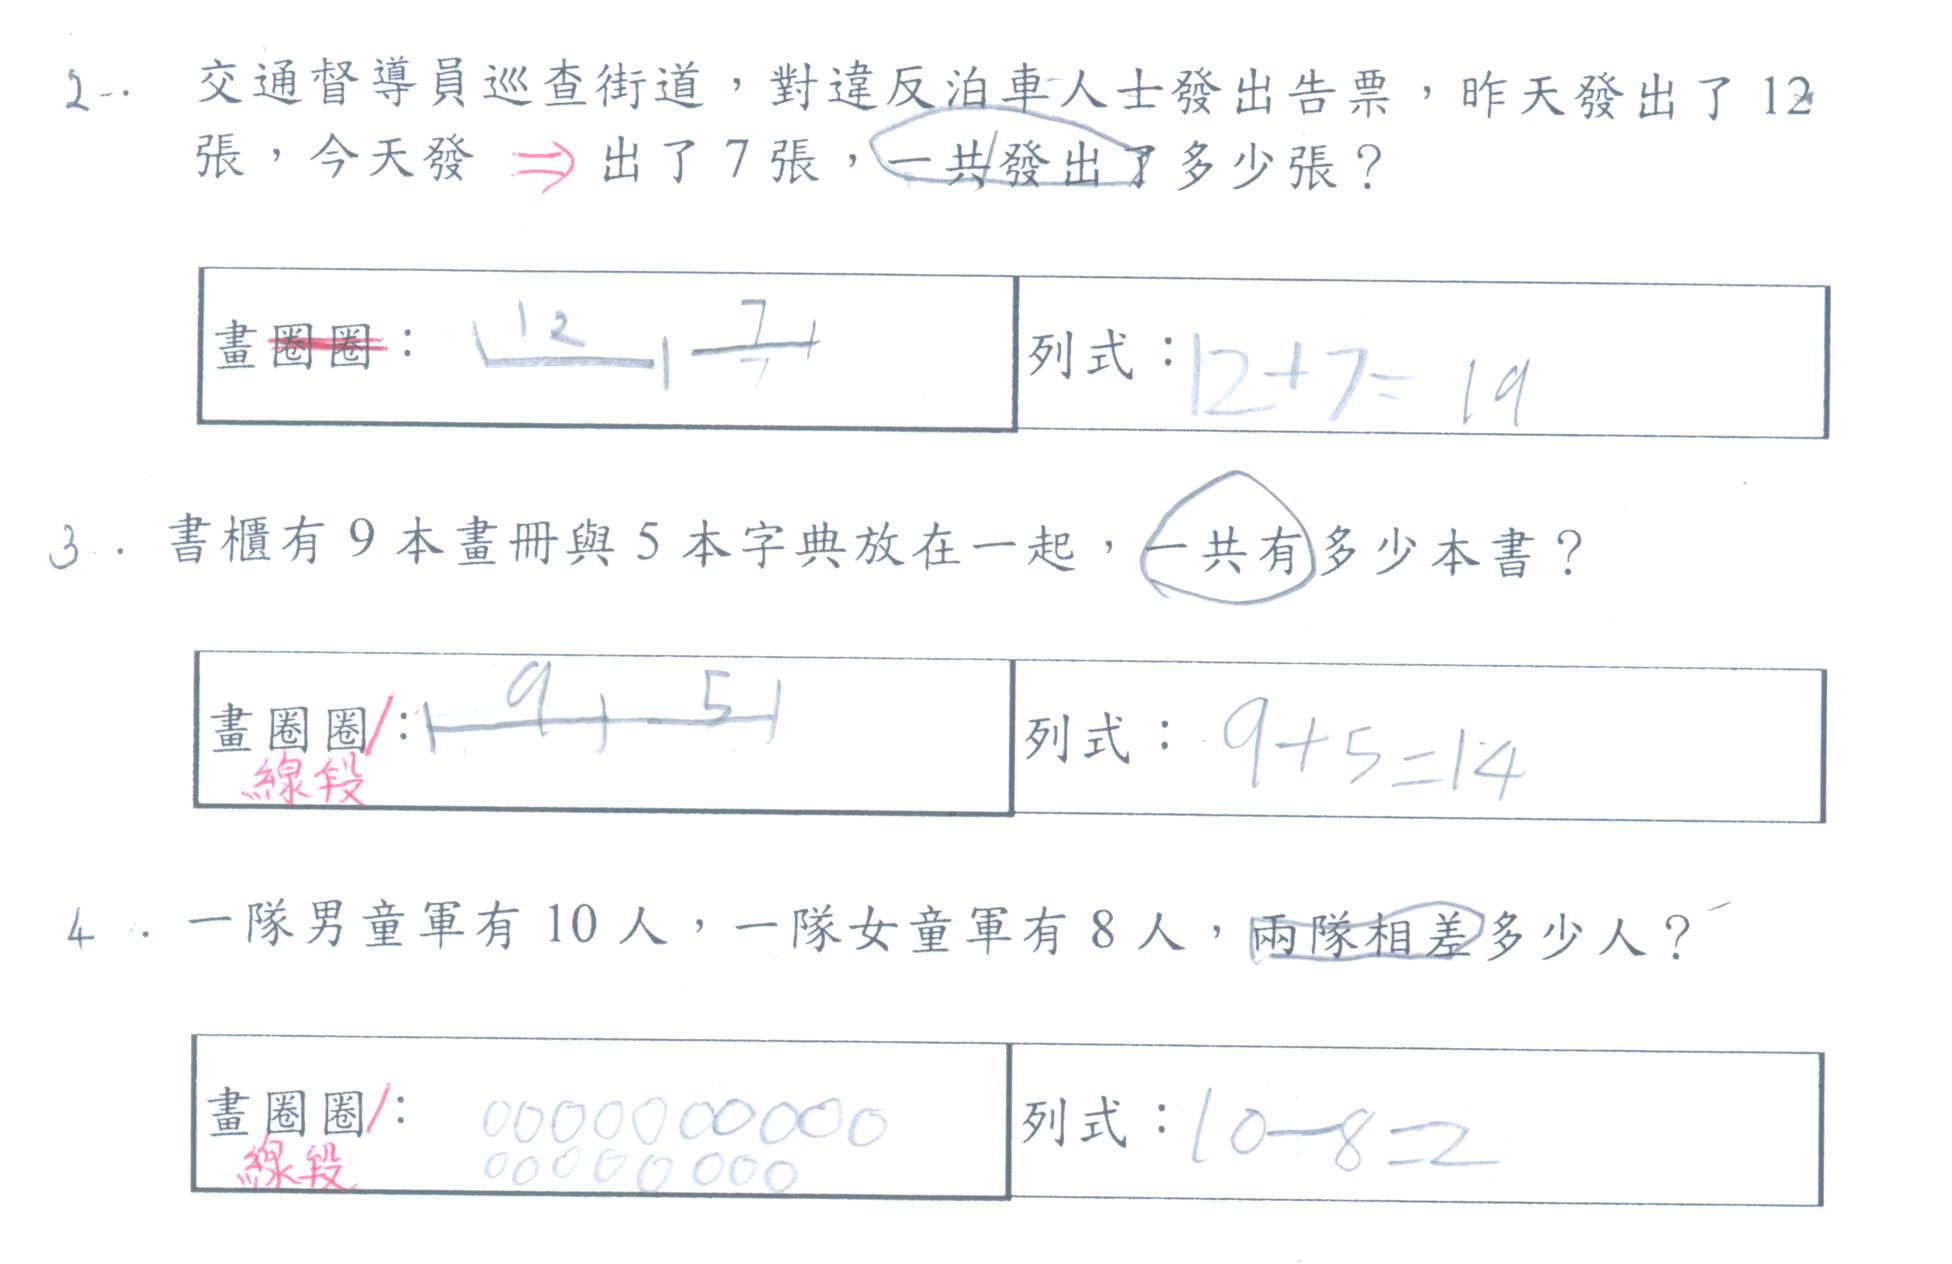 2. 交通督導員巡查街道，對違反泊車人士發出告票，昨天發出了 12
張，今天發 ⇒ 出了 7 張，一共發出了多少張？
畫圈圈： 12 7
列式：12+7= 19
3. 書櫃有 9 本畫冊與 5 本字典放在一起，一共有多少本書？
畫圈圈/： 9 5
線段
列式： 9+5=14
4. 一隊男童軍有 10 人，一隊女童軍有 8 人，兩隊相差多少人？
畫圈圈/： ○○○○○○○○○○
線段 ○○○○○○○○
列式：10-8=2